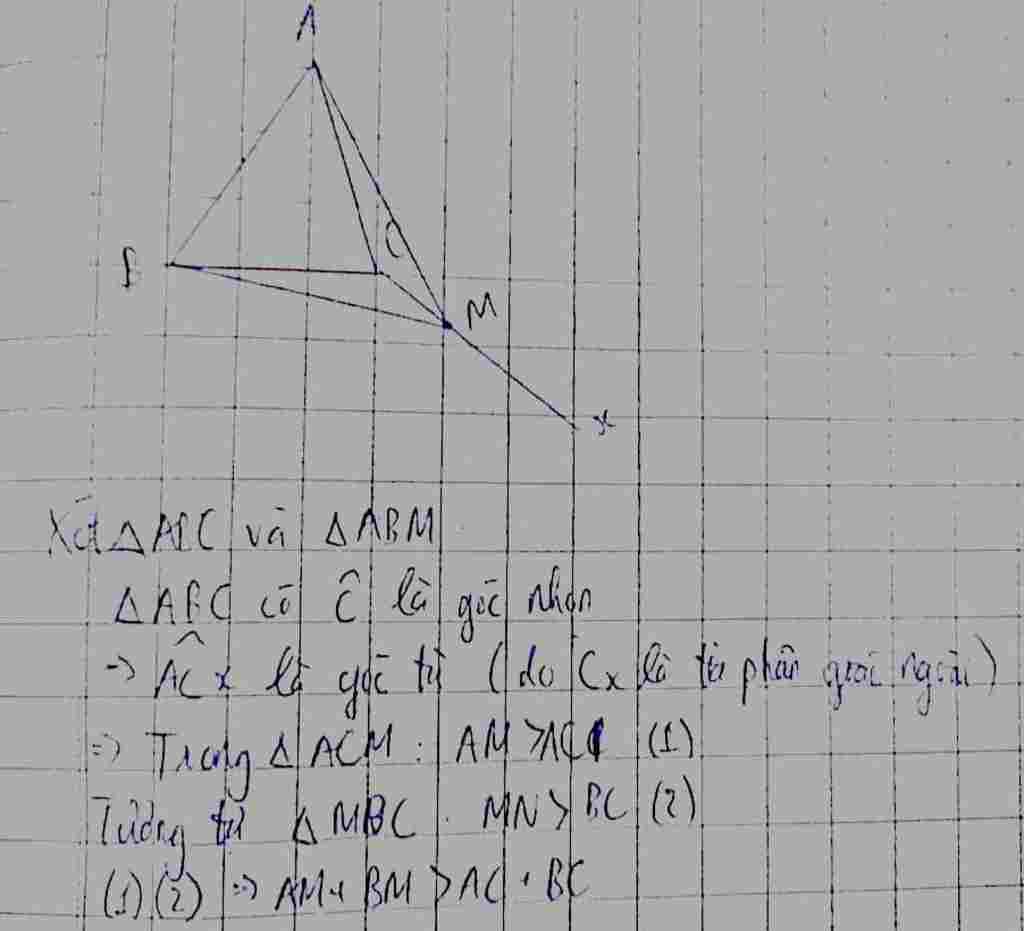 A
B
C
M
x
Xét △ABC và △ABM
△ABC có Ĉ là góc nhọn
→ AĈx là góc tù (do Cx là tia phân giác ngoài)
=> Trong △ACM : AM > AC (1)
Tương tự △MBC . MN > BC (2)
(1)(2) => AM + BM > AC + BC